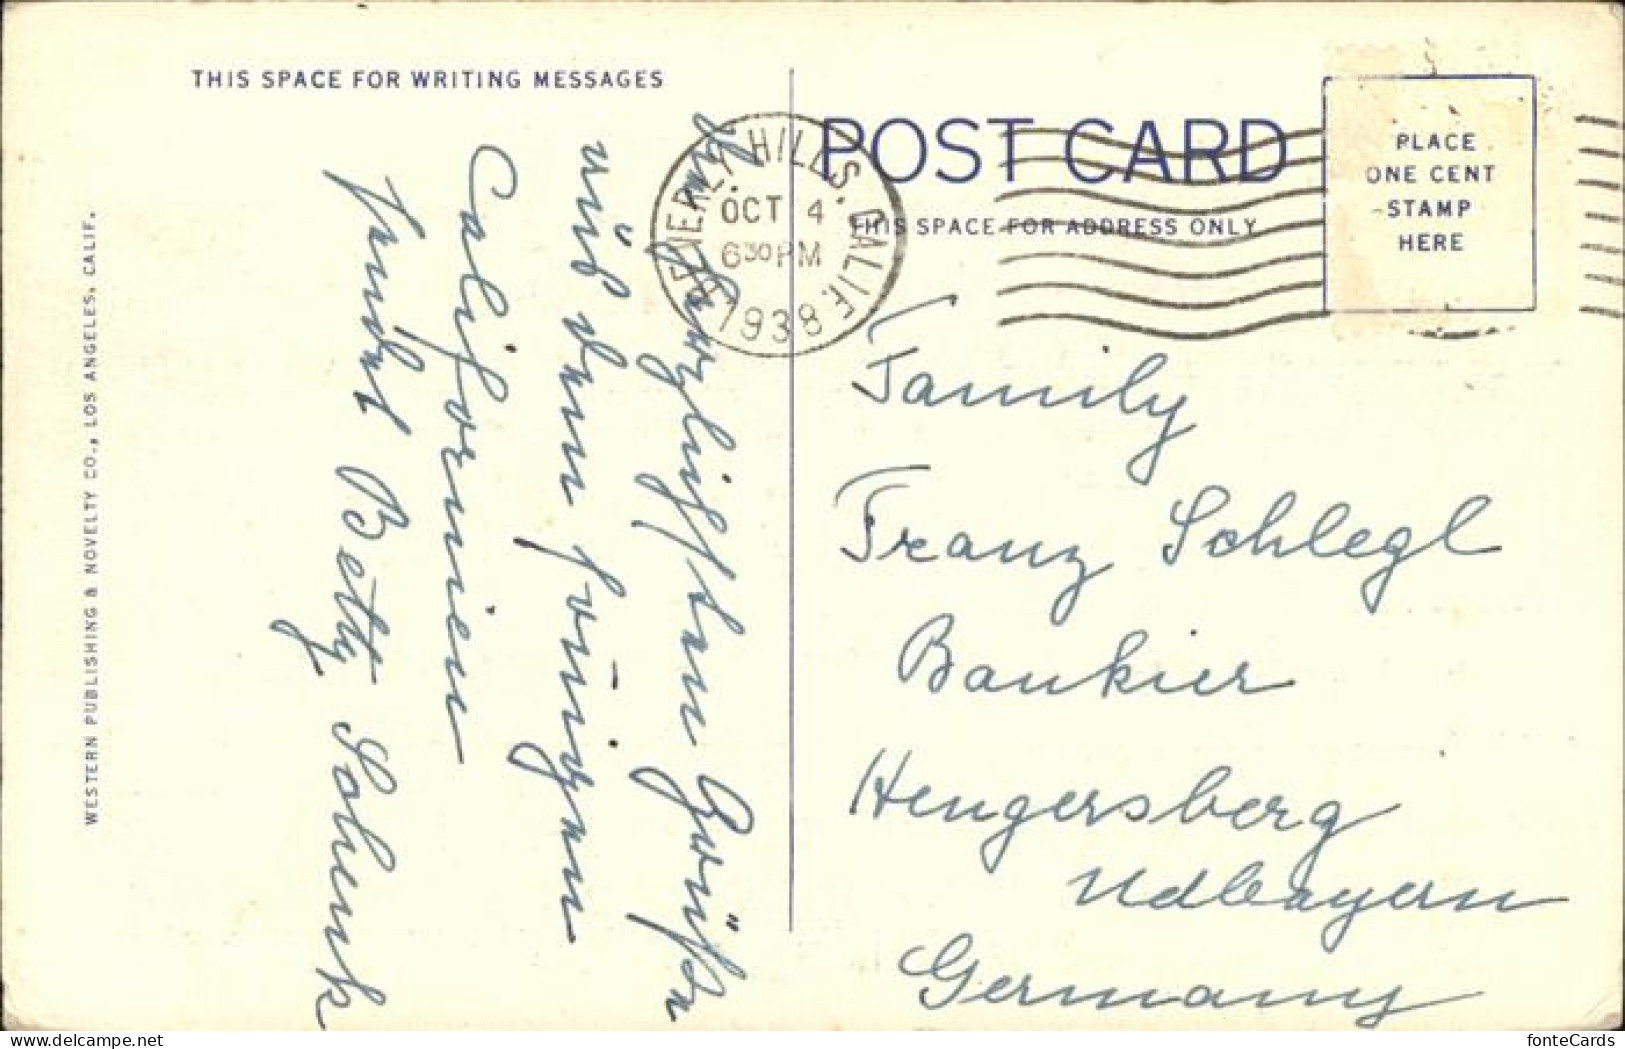 THIS SPACE FOR WRITING MESSAGES
Die herzlichsten Grüße
aus dem sonnigen
Californien
sendet Betty Schenk
WESTERN PUBLISHING & NOVELTY CO., LOS ANGELES, CALIF.
BEVERLY HILLS. CALIF.
OCT 4
6 30 PM
1938
POST CARD
THIS SPACE FOR ADDRESS ONLY
PLACE
ONE CENT
STAMP
HERE
Family
Franz Schlegl
Bankier
Hengersberg
Ndbayern
Germany
delcampe.net
fonteCards